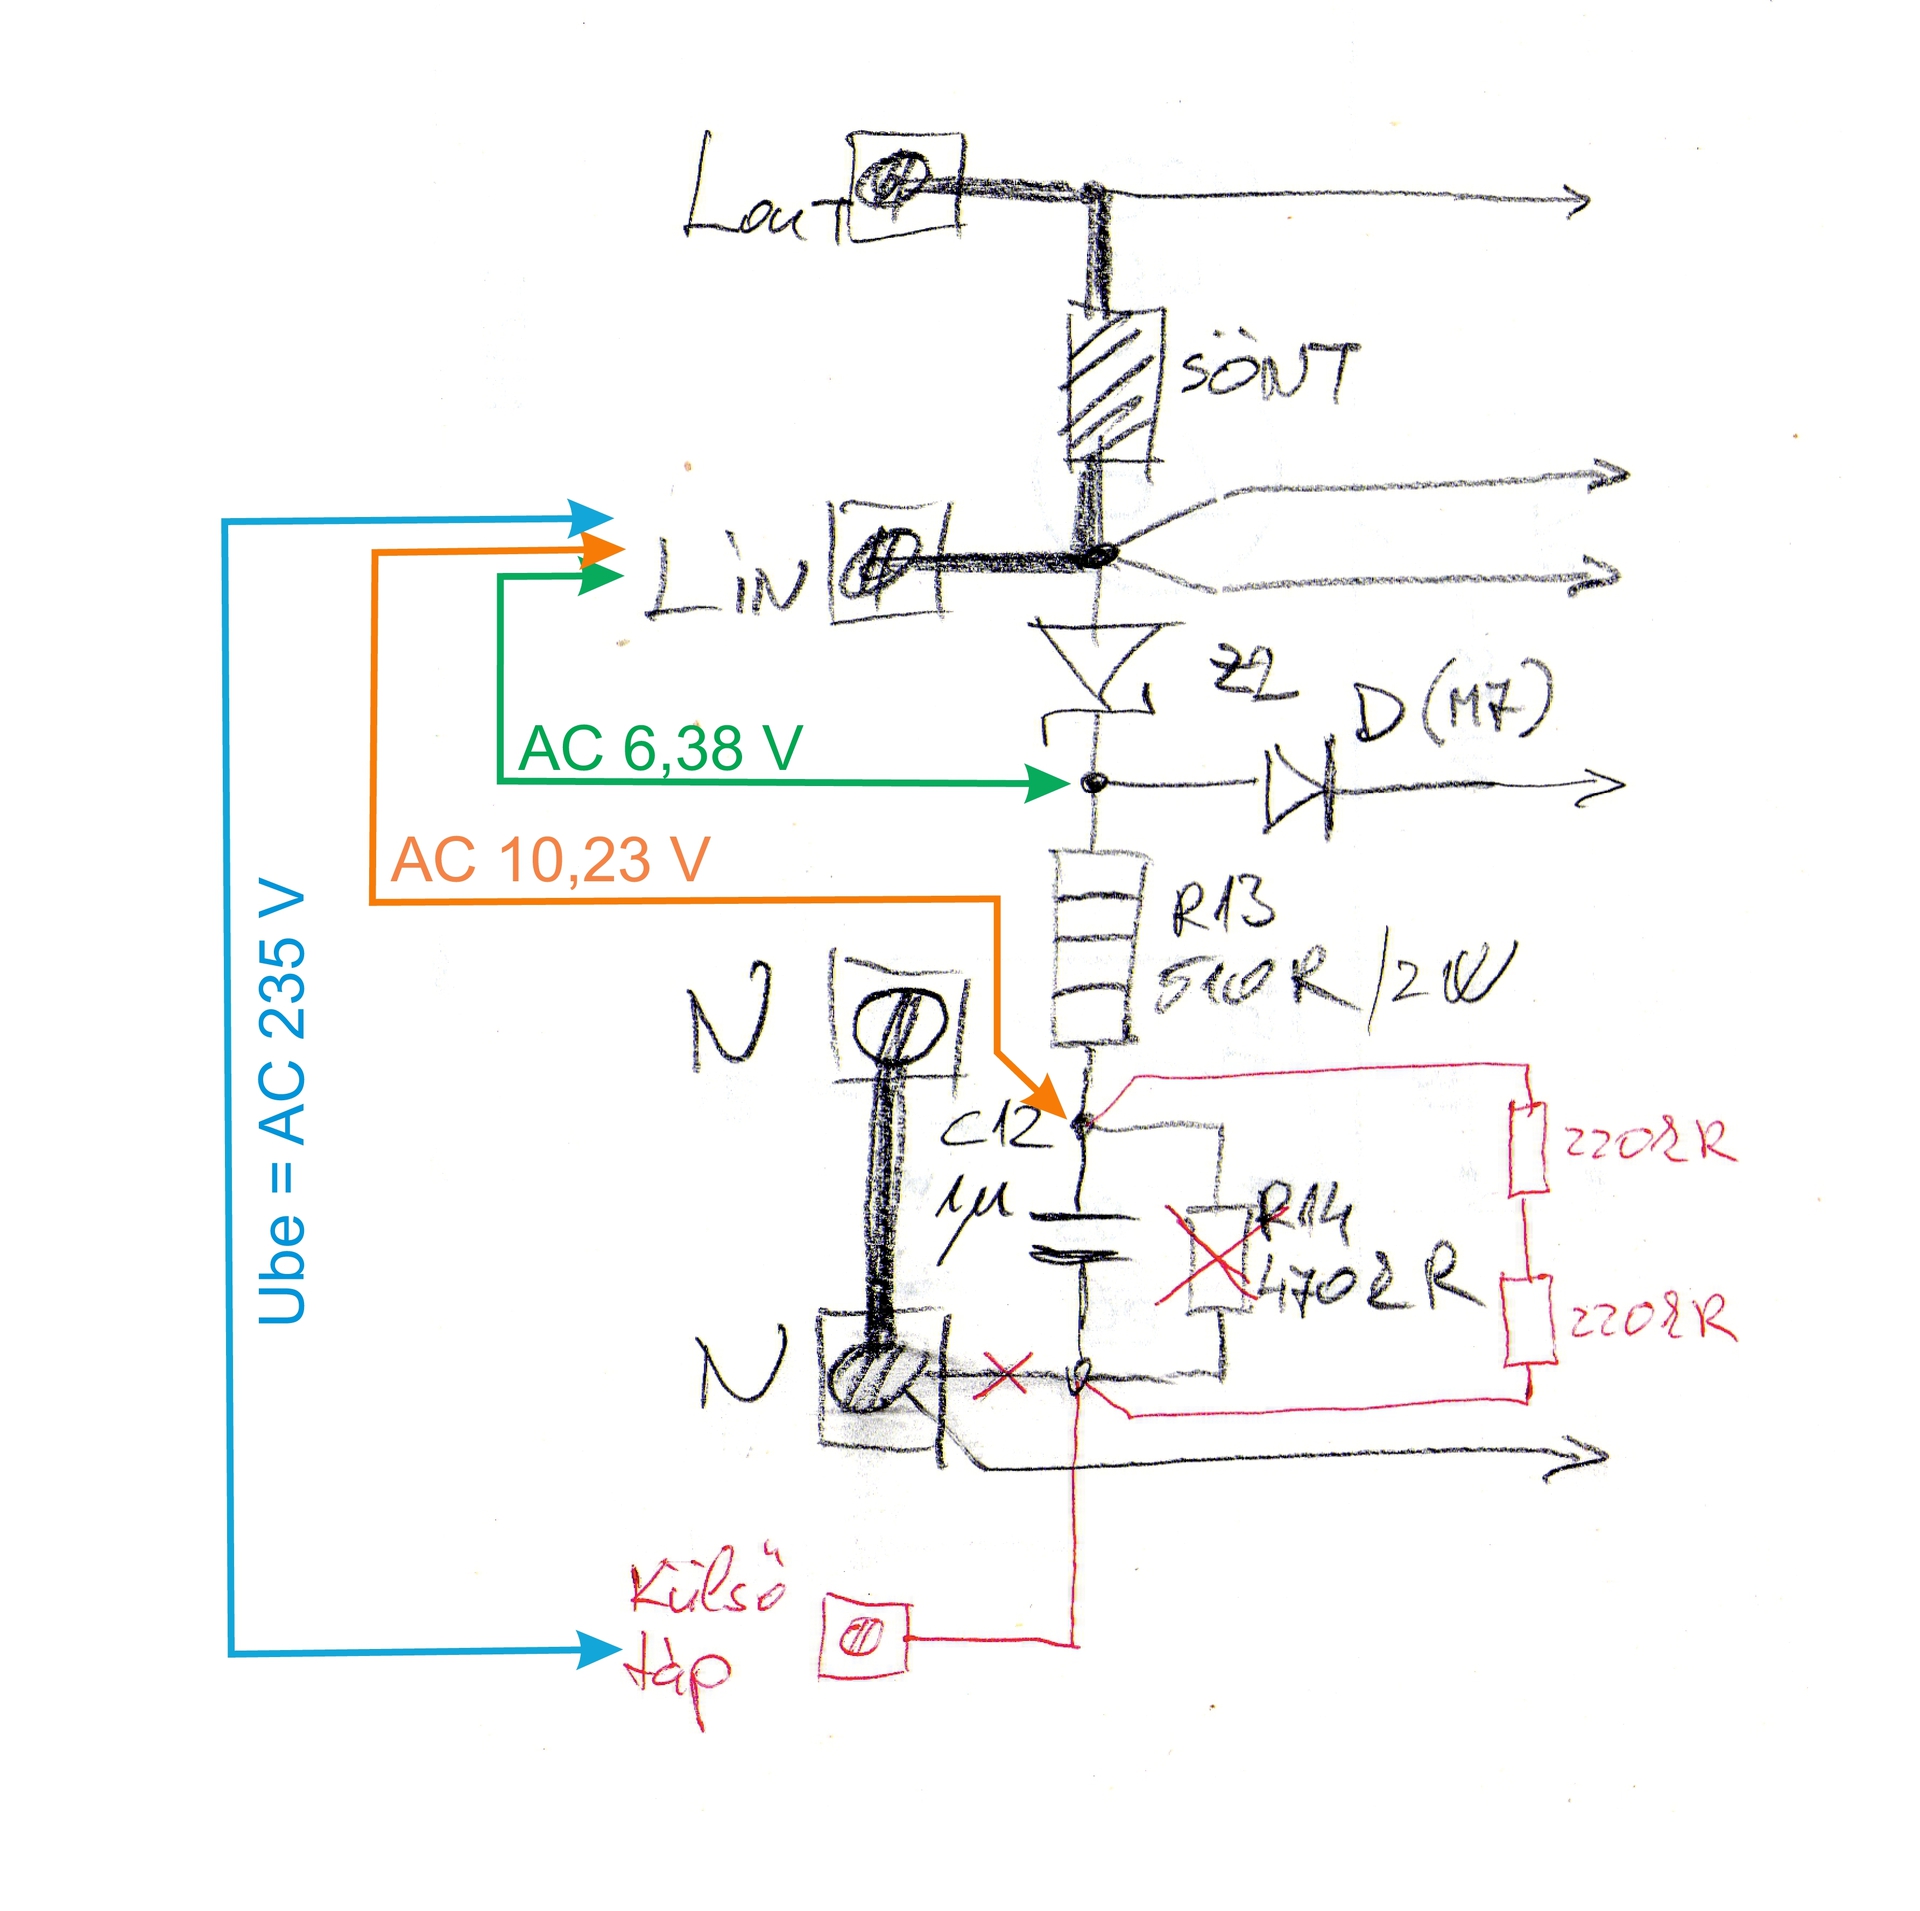 Lout
SÖNT
Lin
Z2
D (M7)
AC 6,38 V
AC 10,23 V
Ube = AC 235 V
R13
510R/2W
N
C12
1µ
220kR
R14
470kR
220kR
N
Külső
táp